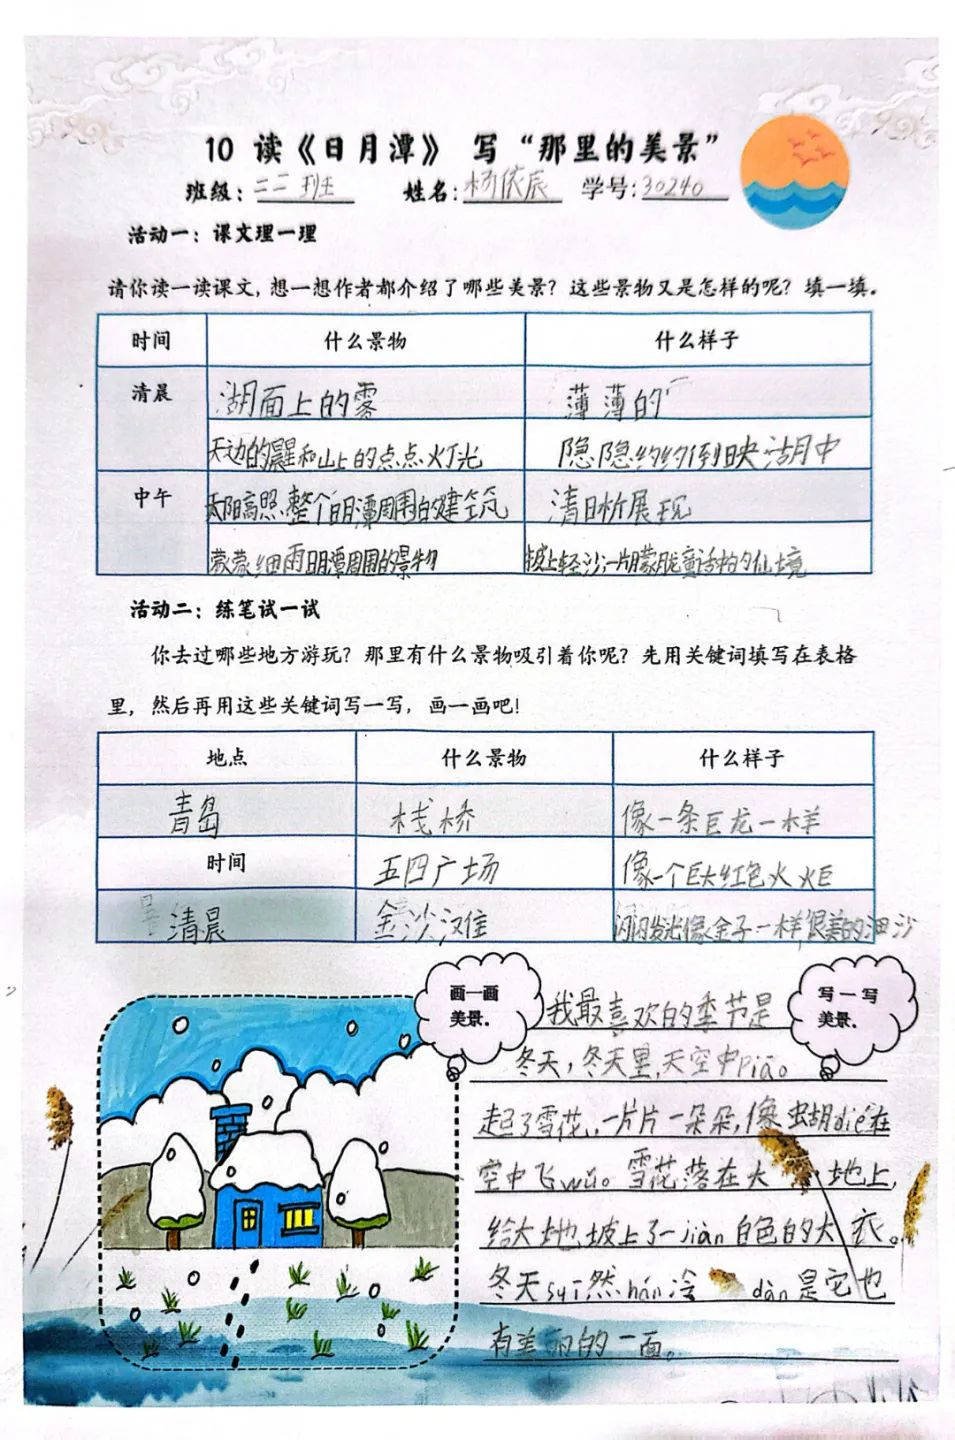 10 读《日月潭》 写“那里的美景”
班级：二二班 姓名：杨依辰 学号：30240
活动一：课文理一理
请你读一读课文，想一想作者都介绍了哪些美景？这些景物又是怎样的呢？填一填。
时间 什么景物 什么样子
清晨 湖面上的雾 薄薄的
天边的晨星和山上的点点灯光 隐隐约约倒映湖中
中午 太阳高照整个日月潭周围的建筑 清晰展现
蒙蒙细雨日月潭周围的景物 披上轻沙一片朦胧童话中的仙境
活动二：练笔试一试
你去过哪些地方游玩？那里有什么景物吸引着你呢？先用关键词填写在表格
里，然后再用这些关键词写一写，画一画吧！
地点 什么景物 什么样子
青岛 栈桥 像一条巨龙一样
时间 五四广场 像一个巨大红色火炬
清晨 金沙滩 闪闪发光像金子一样，很美的细沙
画一画
美景.
写一写
美景.
我最喜欢的季节是
冬天，冬天里，天空中piāo
起了雪花，一片片一朵朵，像蝴dié在
空中飞wǔ。雪花落在大地上，
给大地披上了一jiàn白色的大衣。
冬天suī然hán冷dàn是它也
有美丽的一面。